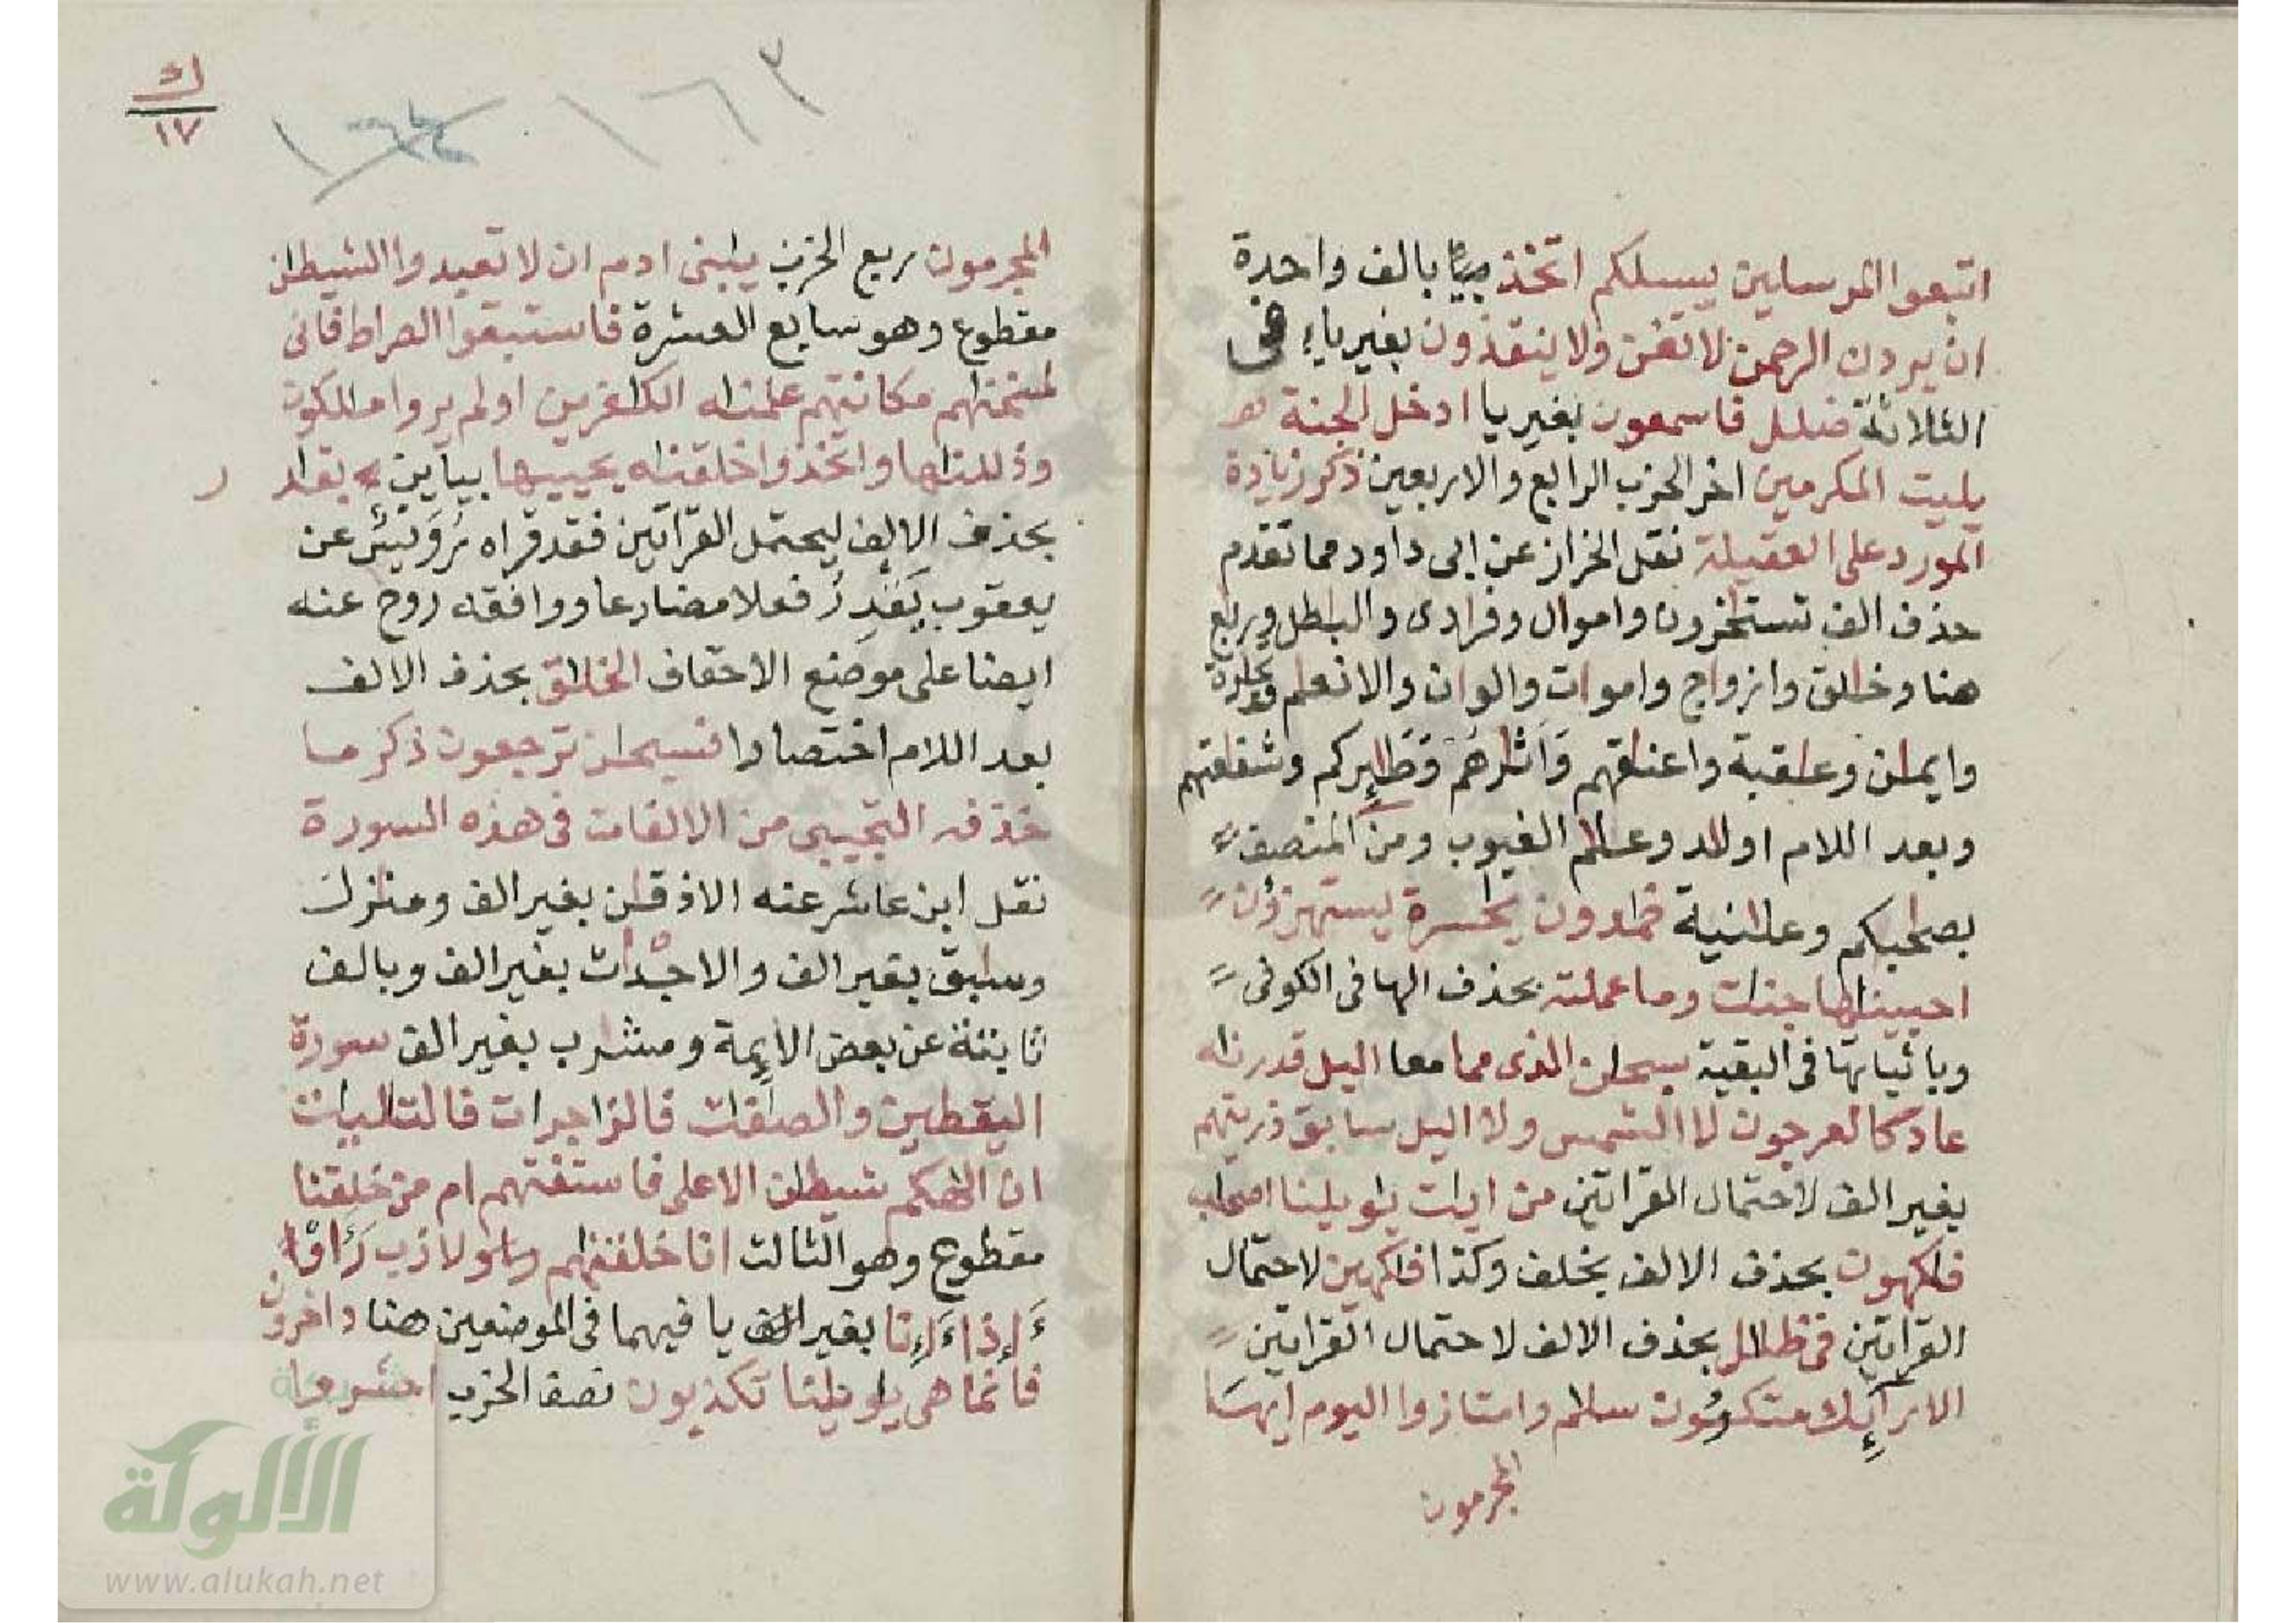 اتبعوا المرسلين يسلكم اتخذ بيا بالف واحدة
ان يردن الرحمن لا تغن ولا ينقذون بغير ياء في
الثلاثة ضلل فاسمعون بغير يا ادخل الجنة
يليت المكرمين اخر الحزب الرابع والاربعين ذكر زيادة
المورد على العقيلة نقل الخراز عن ابى داود مما تقدم
حذف الف تستخرون واموال وفرادى والبطل وربع
هنا وخلق وازواج واموات والوان والانعم وتجارة
وايمن وعقبة واعنقهم وءاثرهم وطيركم وشفعتهم
وبعد اللام اولد وعلم الغيوب ومن المنصف
بصحبكم وعلنية خمدون يحسرة يستهزؤن
احيينها جنات وما عملته بحذف الها فى الكوفى
وباثباتها فى البقية سبحن الذى مما معا اليل قدرنه
عاد كالعرجون لا الشمس ولا اليل سابق ذريتهم
بغير الف لاحتمال القراتين من ايت يويلنا اصحب
فكهون بحذف الالف بخلف وكذا فكهين لاحتمال
القراتين فى ظلل بحذف الالف لاحتمال القراتين
الارآئك متكئون سلم وامتازوا اليوم ايها
المجرمون
ك
١٧
١٦٣
المجرمون ربع الحزب يبنى ادم ان لا تعبدوا الشيطن
مقطوع وهو سابع العشرة فاستبقوا الصراط فانى
لمسخنهم مكانتهم علمنه الكفرين اولم يروا ملكون
وذللنها واتخذوا خلقنه يحييها بياين بقدر
بحذف الالف ليحتمل القراتين فقد قراه رويس عن
يعقوب يقدر فعلا مضارعا ووافقه روح عنه
ايضا على موضع الاحقاف الخلق بحذف الالف
بعد اللام اختصارا فسبحن ترجعون ذكر ما
حذفه التجيبى من الالفات فى هذه السورة
نقل ابن عاشر عنه الاذقن بغير الف ومنازل
وسابق بغير الف والاجداث بغير الف وبالف
ثابتة عن بعض الايمة ومشرب بغير الف سورة
اليقطين والصفت فالزاجرات فالتليت
ان الهكم شيطن الاعلى فاستفتهم ام من خلقنا
مقطوع وهو الثالث انا خلقنهم لازب
ءاذا ءانا بغير يا فيهما فى الموضعين هنا داخرون
فانما هى يويلنا تكذبون نصف الحزب احشروا
الألوكة
www.alukah.net